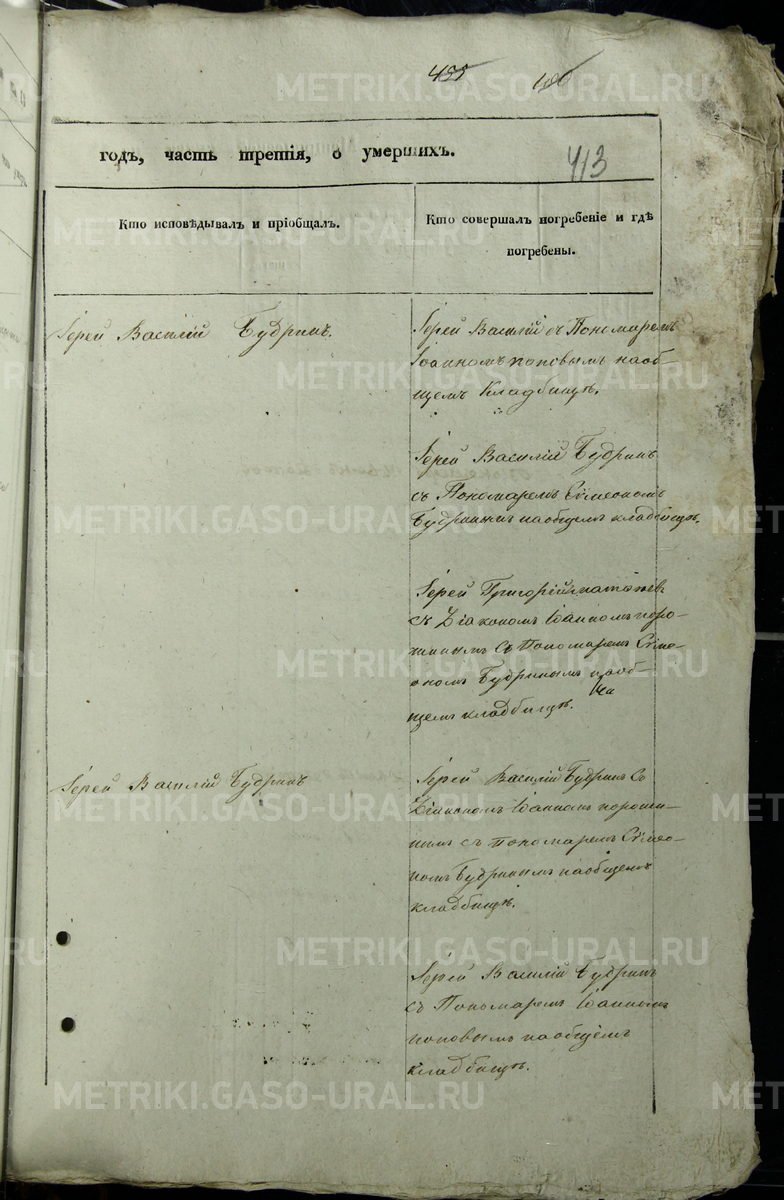 455
413
годъ, часть третія, о умершихъ.
Кто исповѣдывалъ и пріобщалъ.
Кто совершалъ погребеніе и гдѣ
погребены.
Іерей Василій Будринъ.
Іерей Василій съ Пономаремъ
Іоанномъ поповымъ наоб-
щемъ Кладбищѣ.
Іерей Василій Будринъ
съ Пономаремъ Сѵмеономъ
Будринымъ наобщемъ кладбищѣ.
Іерей Григорій
съ Діакономъ Іоанномъ поро-
шинымъ съ Пономаремъ Сѵме-
ономъ Будринымъ на об-
щемъ кладбищѣ.
Іерей Василій Будринъ
Іерей Василій Будринъ съ
Діакономъ Іоанномъ пороши-
нымъ съ пономаремъ Сѵмео-
номъ Будринымъ наобщемъ
кладбищѣ.
Іерей Василій Будринъ
съ Пономаремъ Іоанномъ
поповымъ наобщемъ
кладбищѣ.
METRIKI.GASO-URAL.RU